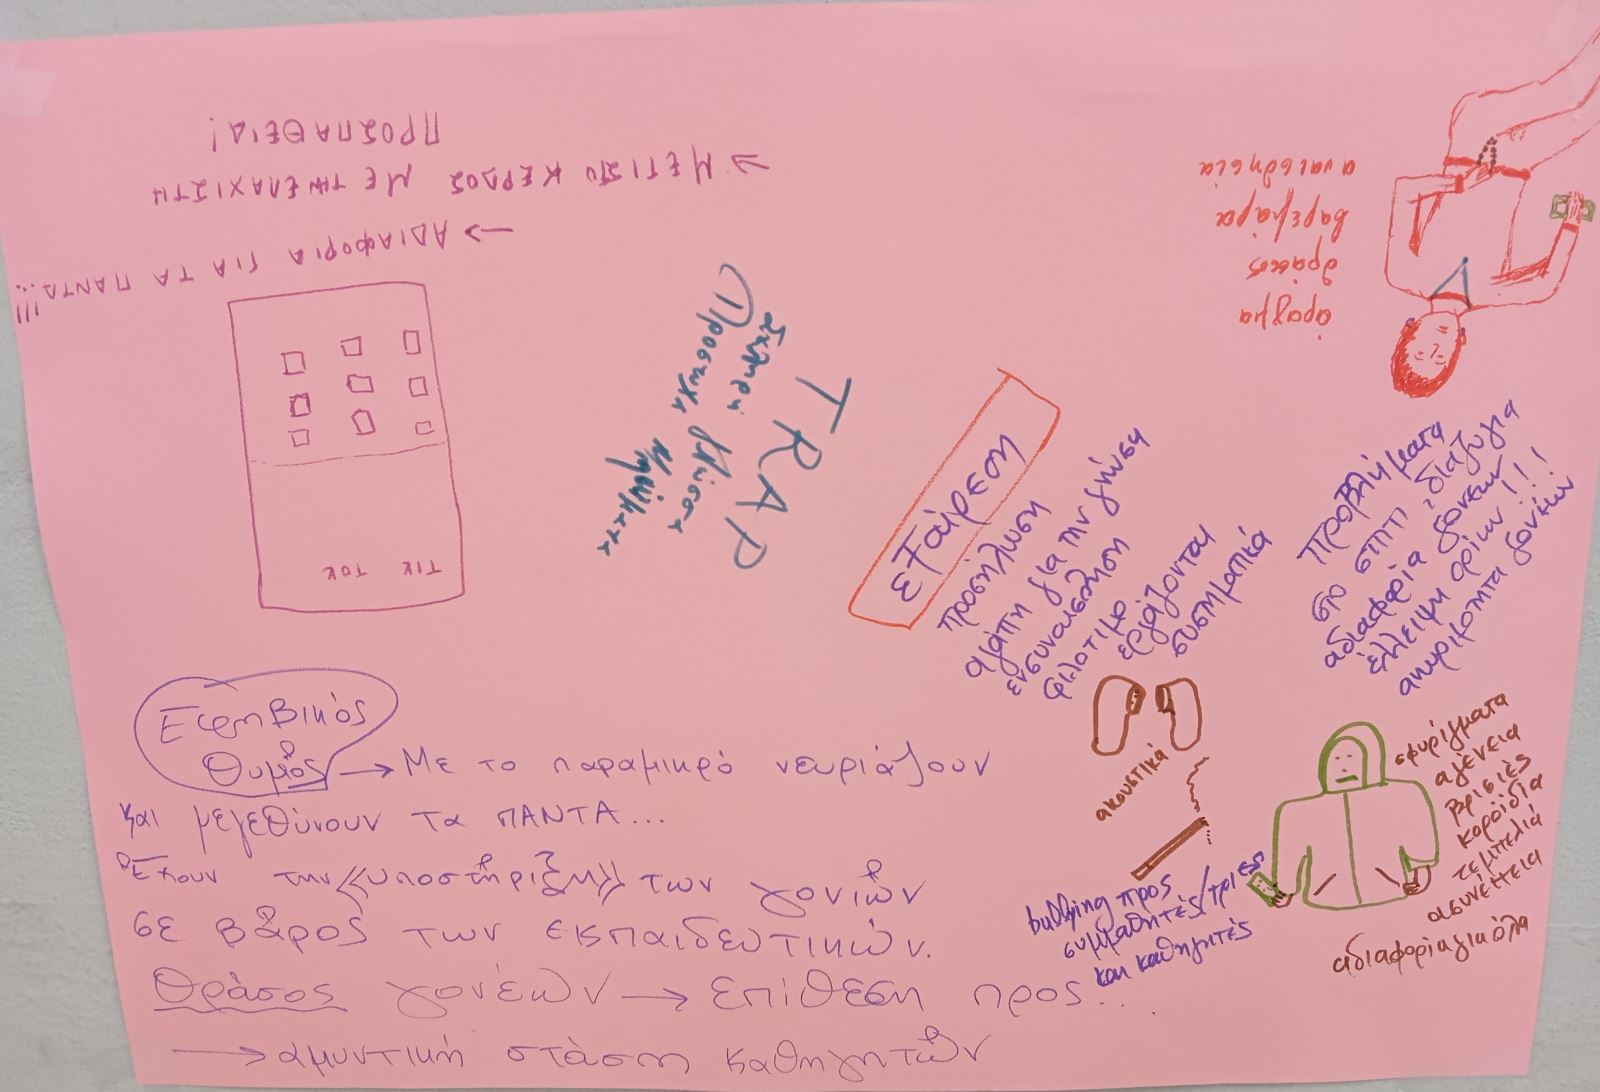 → ΜΕΓΙΣΤΟ ΚΕΡΔΟΣ ΜΕ ΤΗΝ ΕΛΑΧΙΣΤΗ
ΠΡΟΣΠΑΘΕΙΑ!
→ ΑΔΙΑΦΟΡΙΑ ΓΙΑ ΤΑ ΠΑΝΤΑ...!!!
ΤΙΚ ΤΟΚ
TRAP
σκληρή
Προσωχή γλώσσα
Μηνύματα
άραγμα
θράσος
βαρεμάρα
αναισθησία
εξαίρεση
προσήλωση
αγάπη για την γνώση
ενσυναίσθηση
φιλότιμο
εργάζονται
συστηματικά
προβλήματα
στο σπίτι, διαζύγια
αδιαφορία γονέων
έλλειψη ορίων!!!
ανωριμότητα γονέων
Εφηβικός
Θυμός → Με το παραμικρό νευριάζουν
και μεγεθύνουν τα ΠΑΝΤΑ...
Έχουν την <<υποστήριξη>> των γονιών
σε βάρος των εκπαιδευτικών.
Θράσος γονέων → επίθεση προς...
→ αμυντική στάση καθηγητών
ακουστικά
bullying προς
συμμαθητές/τριες
και καθηγητές
σφυρίγματα
αγένεια
βρισιές
κοροϊδία
τεμπελιά
ασυνέπεια
αδιαφορία για όλα